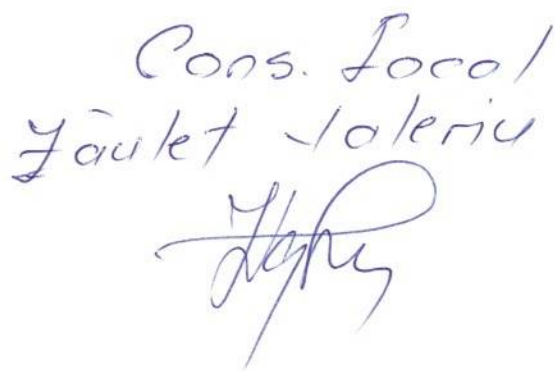 Cons. Local
Zăulet Valeriu